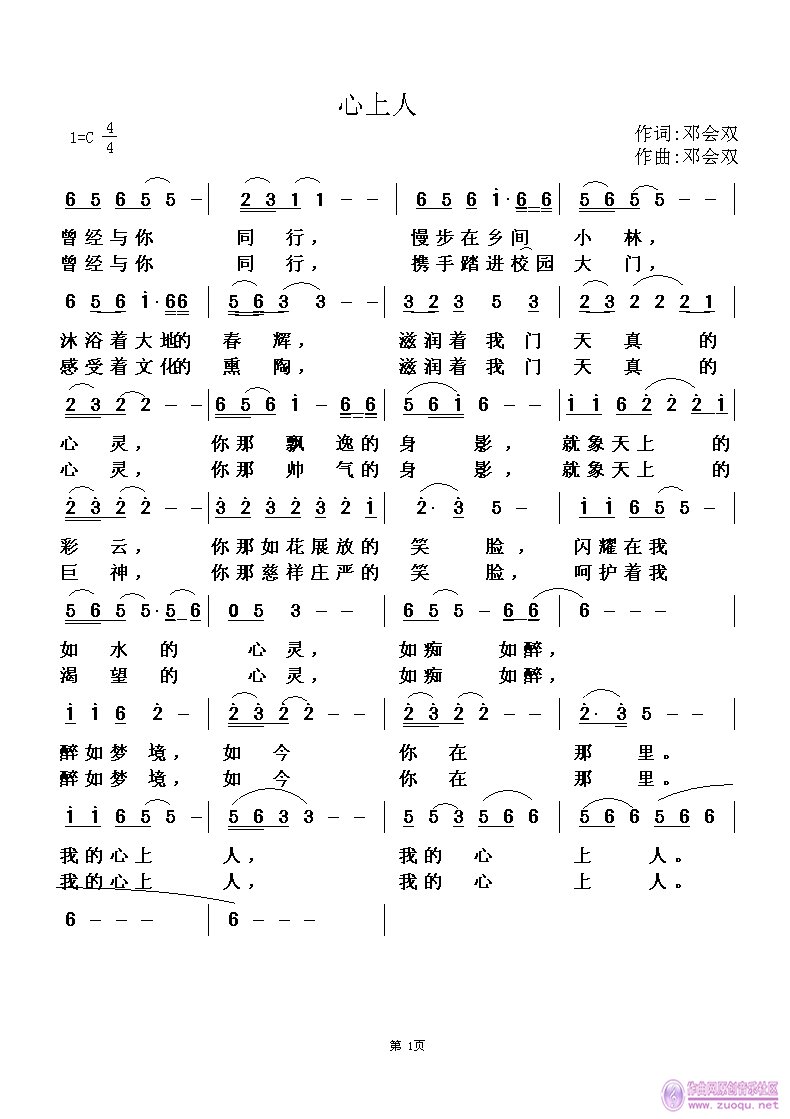 心上人
1=C 4/4
作词:邓会双
作曲:邓会双
6 5 6 5 5 - | 2 3 1 1 - - | 6 5 6 i· 6 6 | 5 6 5 5 - -
曾经与你 同 行， 慢步在乡间 小 林，
曾经与你 同 行， 携手踏进校园 大 门，
6 5 6 i· 6 6 | 5 6 3 3 - - | 3 2 3 5 3 | 2 3 2 2 2 1
沐浴着大地的 春 辉， 滋润着我门 天 真 的
感受着文化的 熏 陶， 滋润着我门 天 真 的
2 3 2 2 - - | 6 5 6 i - 6 6 | 5 6 i 6 - - | i i 6 2 2 2 i
心 灵， 你那 飘 逸的 身 影， 就象天上 的
心 灵， 你那 帅 气的 身 影， 就象天上 的
2 3 2 2 - - | 3 2 3 2 3 2 i | 2· 3 5 - | i i 6 5 5 -
彩 云， 你那如花展放的 笑 脸， 闪耀在我
巨 神， 你那慈祥庄严的 笑 脸， 呵护着我
5 6 5 5· 5 6 | 0 5 3 - - | 6 5 5 - 6 6 | 6 - - -
如 水 的 心灵， 如痴 如醉，
渴 望 的 心灵， 如痴 如醉，
i i 6 2 - | 2 3 2 2 - - | 2 3 2 2 - - | 2· 3 5 - -
醉如梦 境， 如 今 你 在 那 里。
醉如梦 境， 如 今 你 在 那 里。
i i 6 5 5 - | 5 6 3 3 - - | 5 5 3 5 6 6 | 5 6 6 5 6 6
我的心上 人， 我的 心 上 人。
我的心上 人， 我的 心 上 人。
6 - - - | 6 - - -
第 1页
作曲网原创音乐社区
www.zuoqu.net